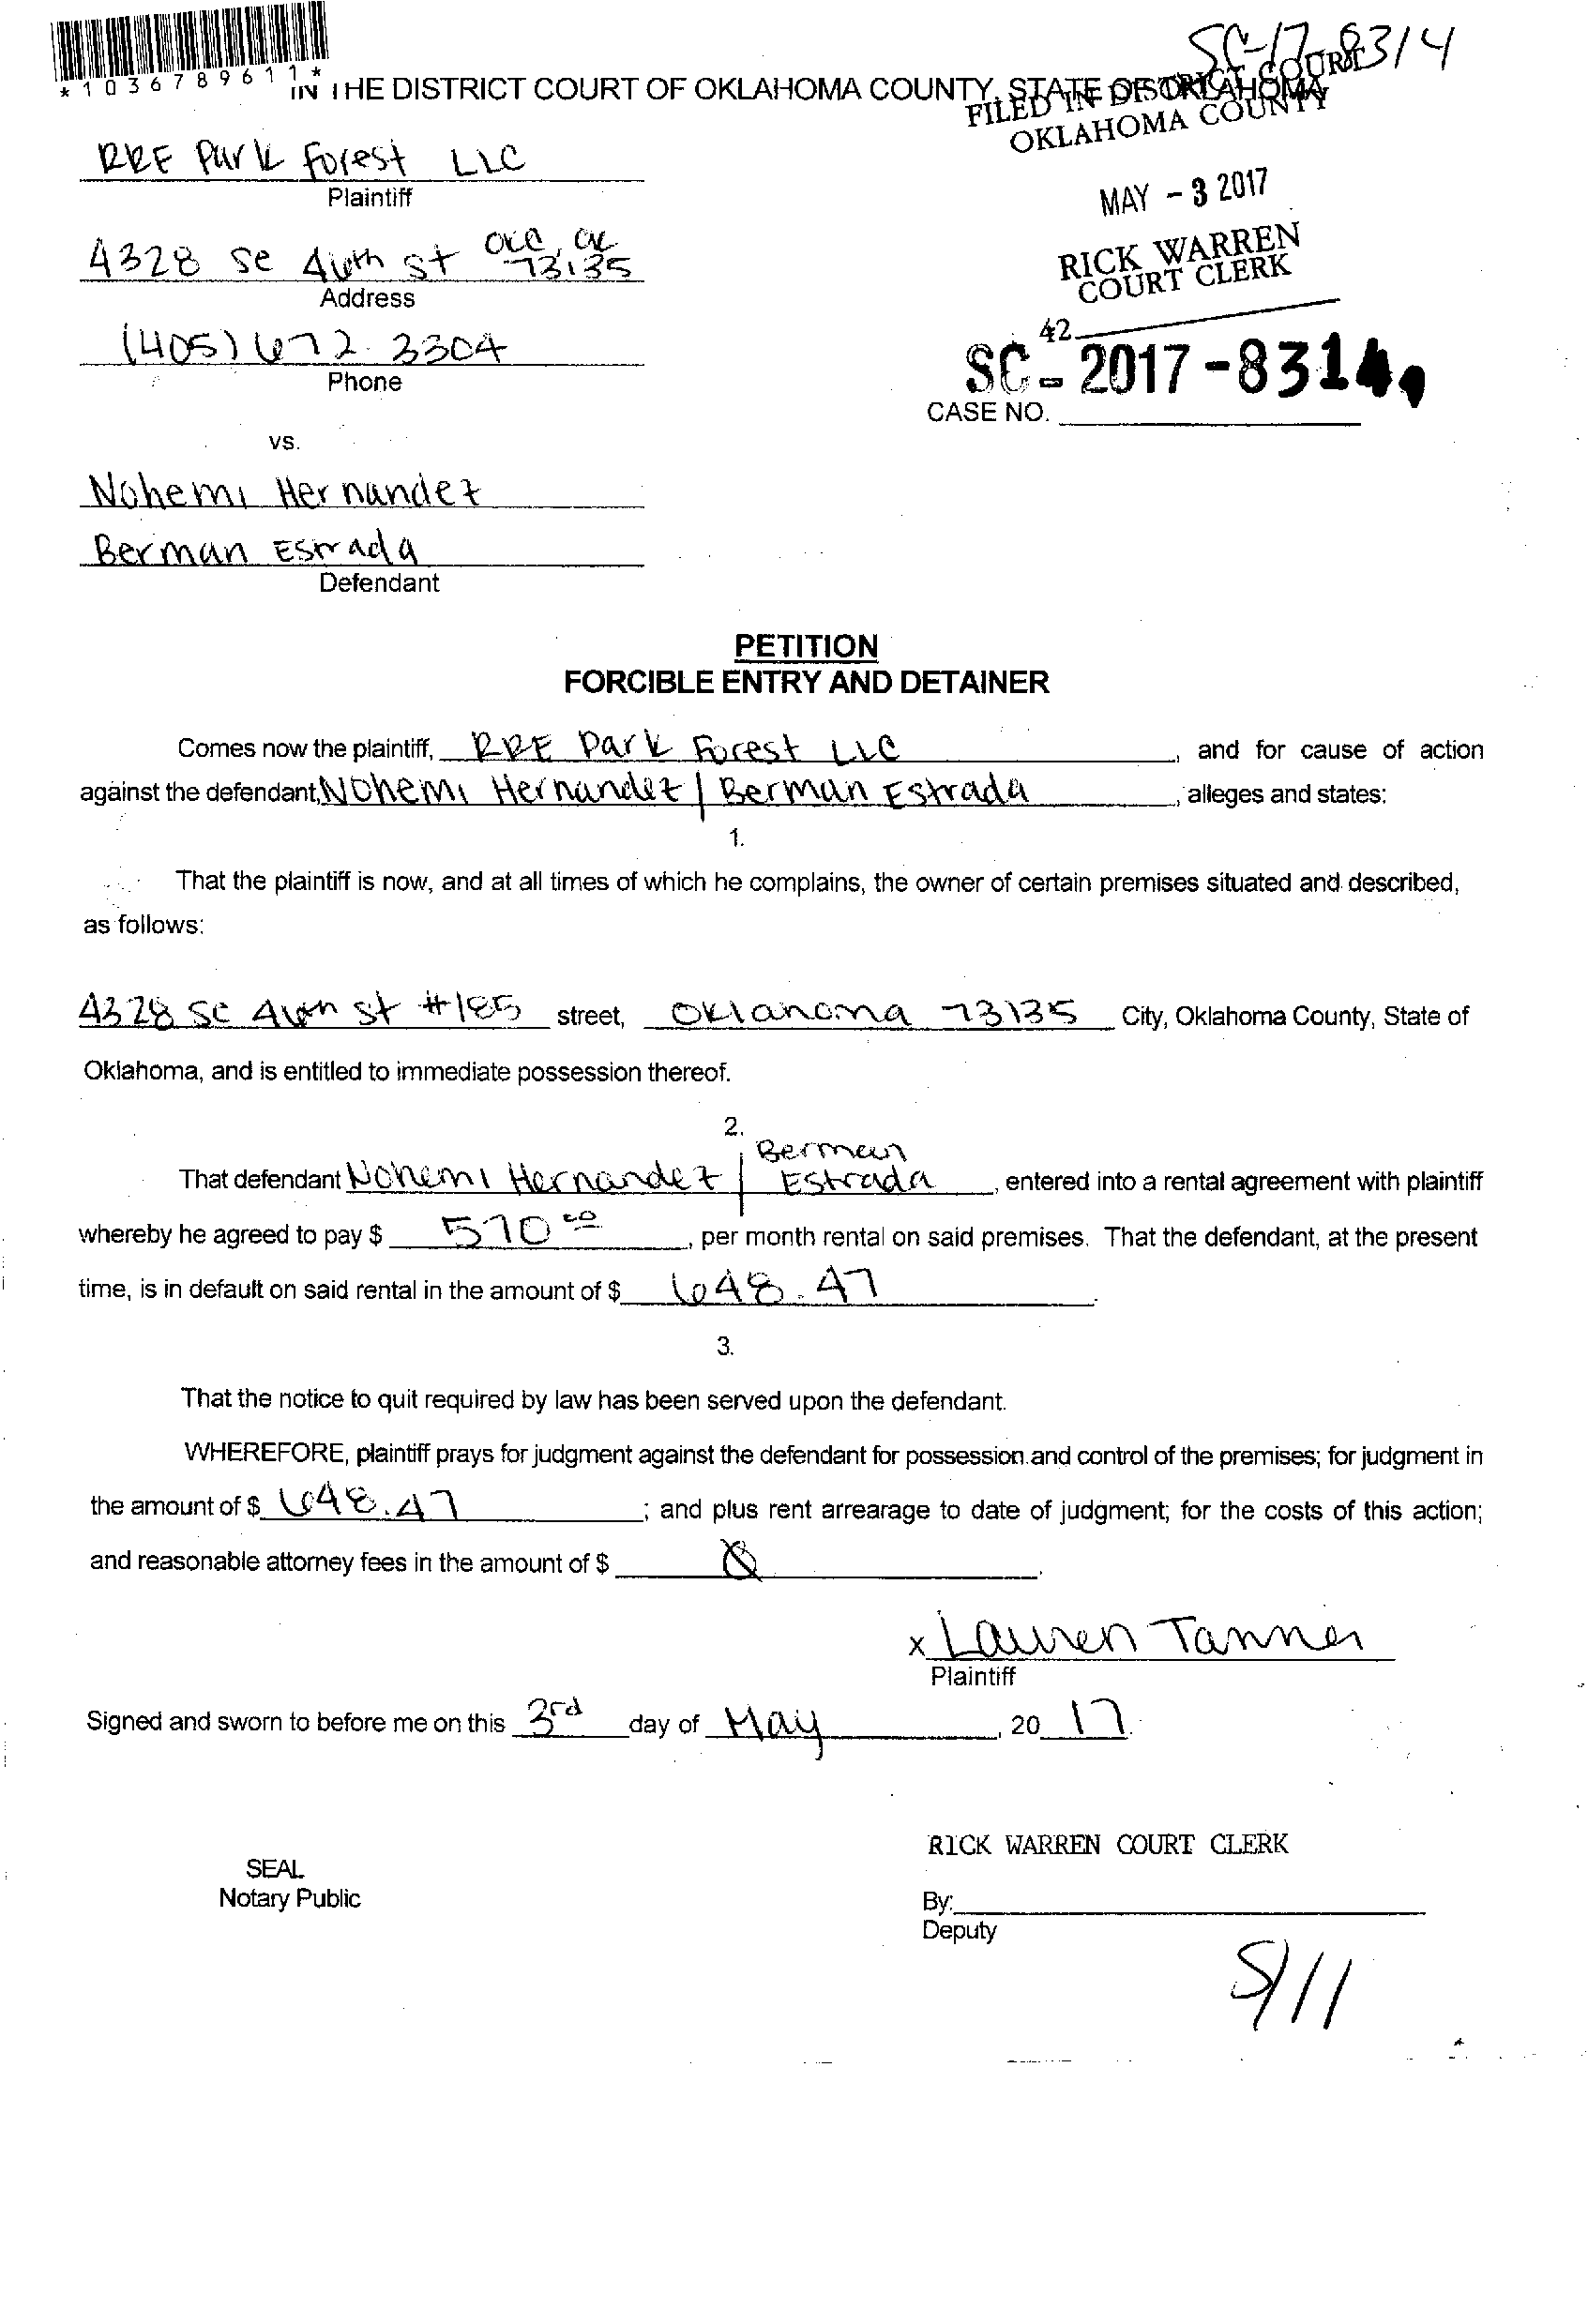 SC-17-8314
*1036789611*
IN THE DISTRICT COURT OF OKLAHOMA COUNTY, STATE OF OKLAHOMA
FILED IN DISTRICT COURT
OKLAHOMA COUNTY
RRE Park Forest LLC
Plaintiff
MAY - 3 2017
4328 SE 46th St OKC, OK 73135
Address
RICK WARREN
COURT CLERK
(405) 672-3304
Phone
42
SC - 2017 - 8314
CASE NO.
vs.
Nohemi Hernandez
Berman Estrada
Defendant
PETITION
FORCIBLE ENTRY AND DETAINER
Comes now the plaintiff, RRE Park Forest LLC, and for cause of action
against the defendant, Nohemi Hernandez / Berman Estrada, alleges and states:
1.
That the plaintiff is now, and at all times of which he complains, the owner of certain premises situated and described,
as follows:
4328 SE 46th St #185 street, Oklahoma 73135 City, Oklahoma County, State of
Oklahoma, and is entitled to immediate possession thereof.
2.
That defendant Nohemi Hernandez / Berman Estrada, entered into a rental agreement with plaintiff
whereby he agreed to pay $ 570 00, per month rental on said premises. That the defendant, at the present
time, is in default on said rental in the amount of $ 648.47.
3.
That the notice to quit required by law has been served upon the defendant.
WHEREFORE, plaintiff prays for judgment against the defendant for possession and control of the premises; for judgment in
the amount of $ 648.47; and plus rent arrearage to date of judgment; for the costs of this action;
and reasonable attorney fees in the amount of $
x Lauren Tanner
Plaintiff
Signed and sworn to before me on this 3rd day of May, 20 17.
RICK WARREN COURT CLERK
SEAL
Notary Public
By:
Deputy
5/11